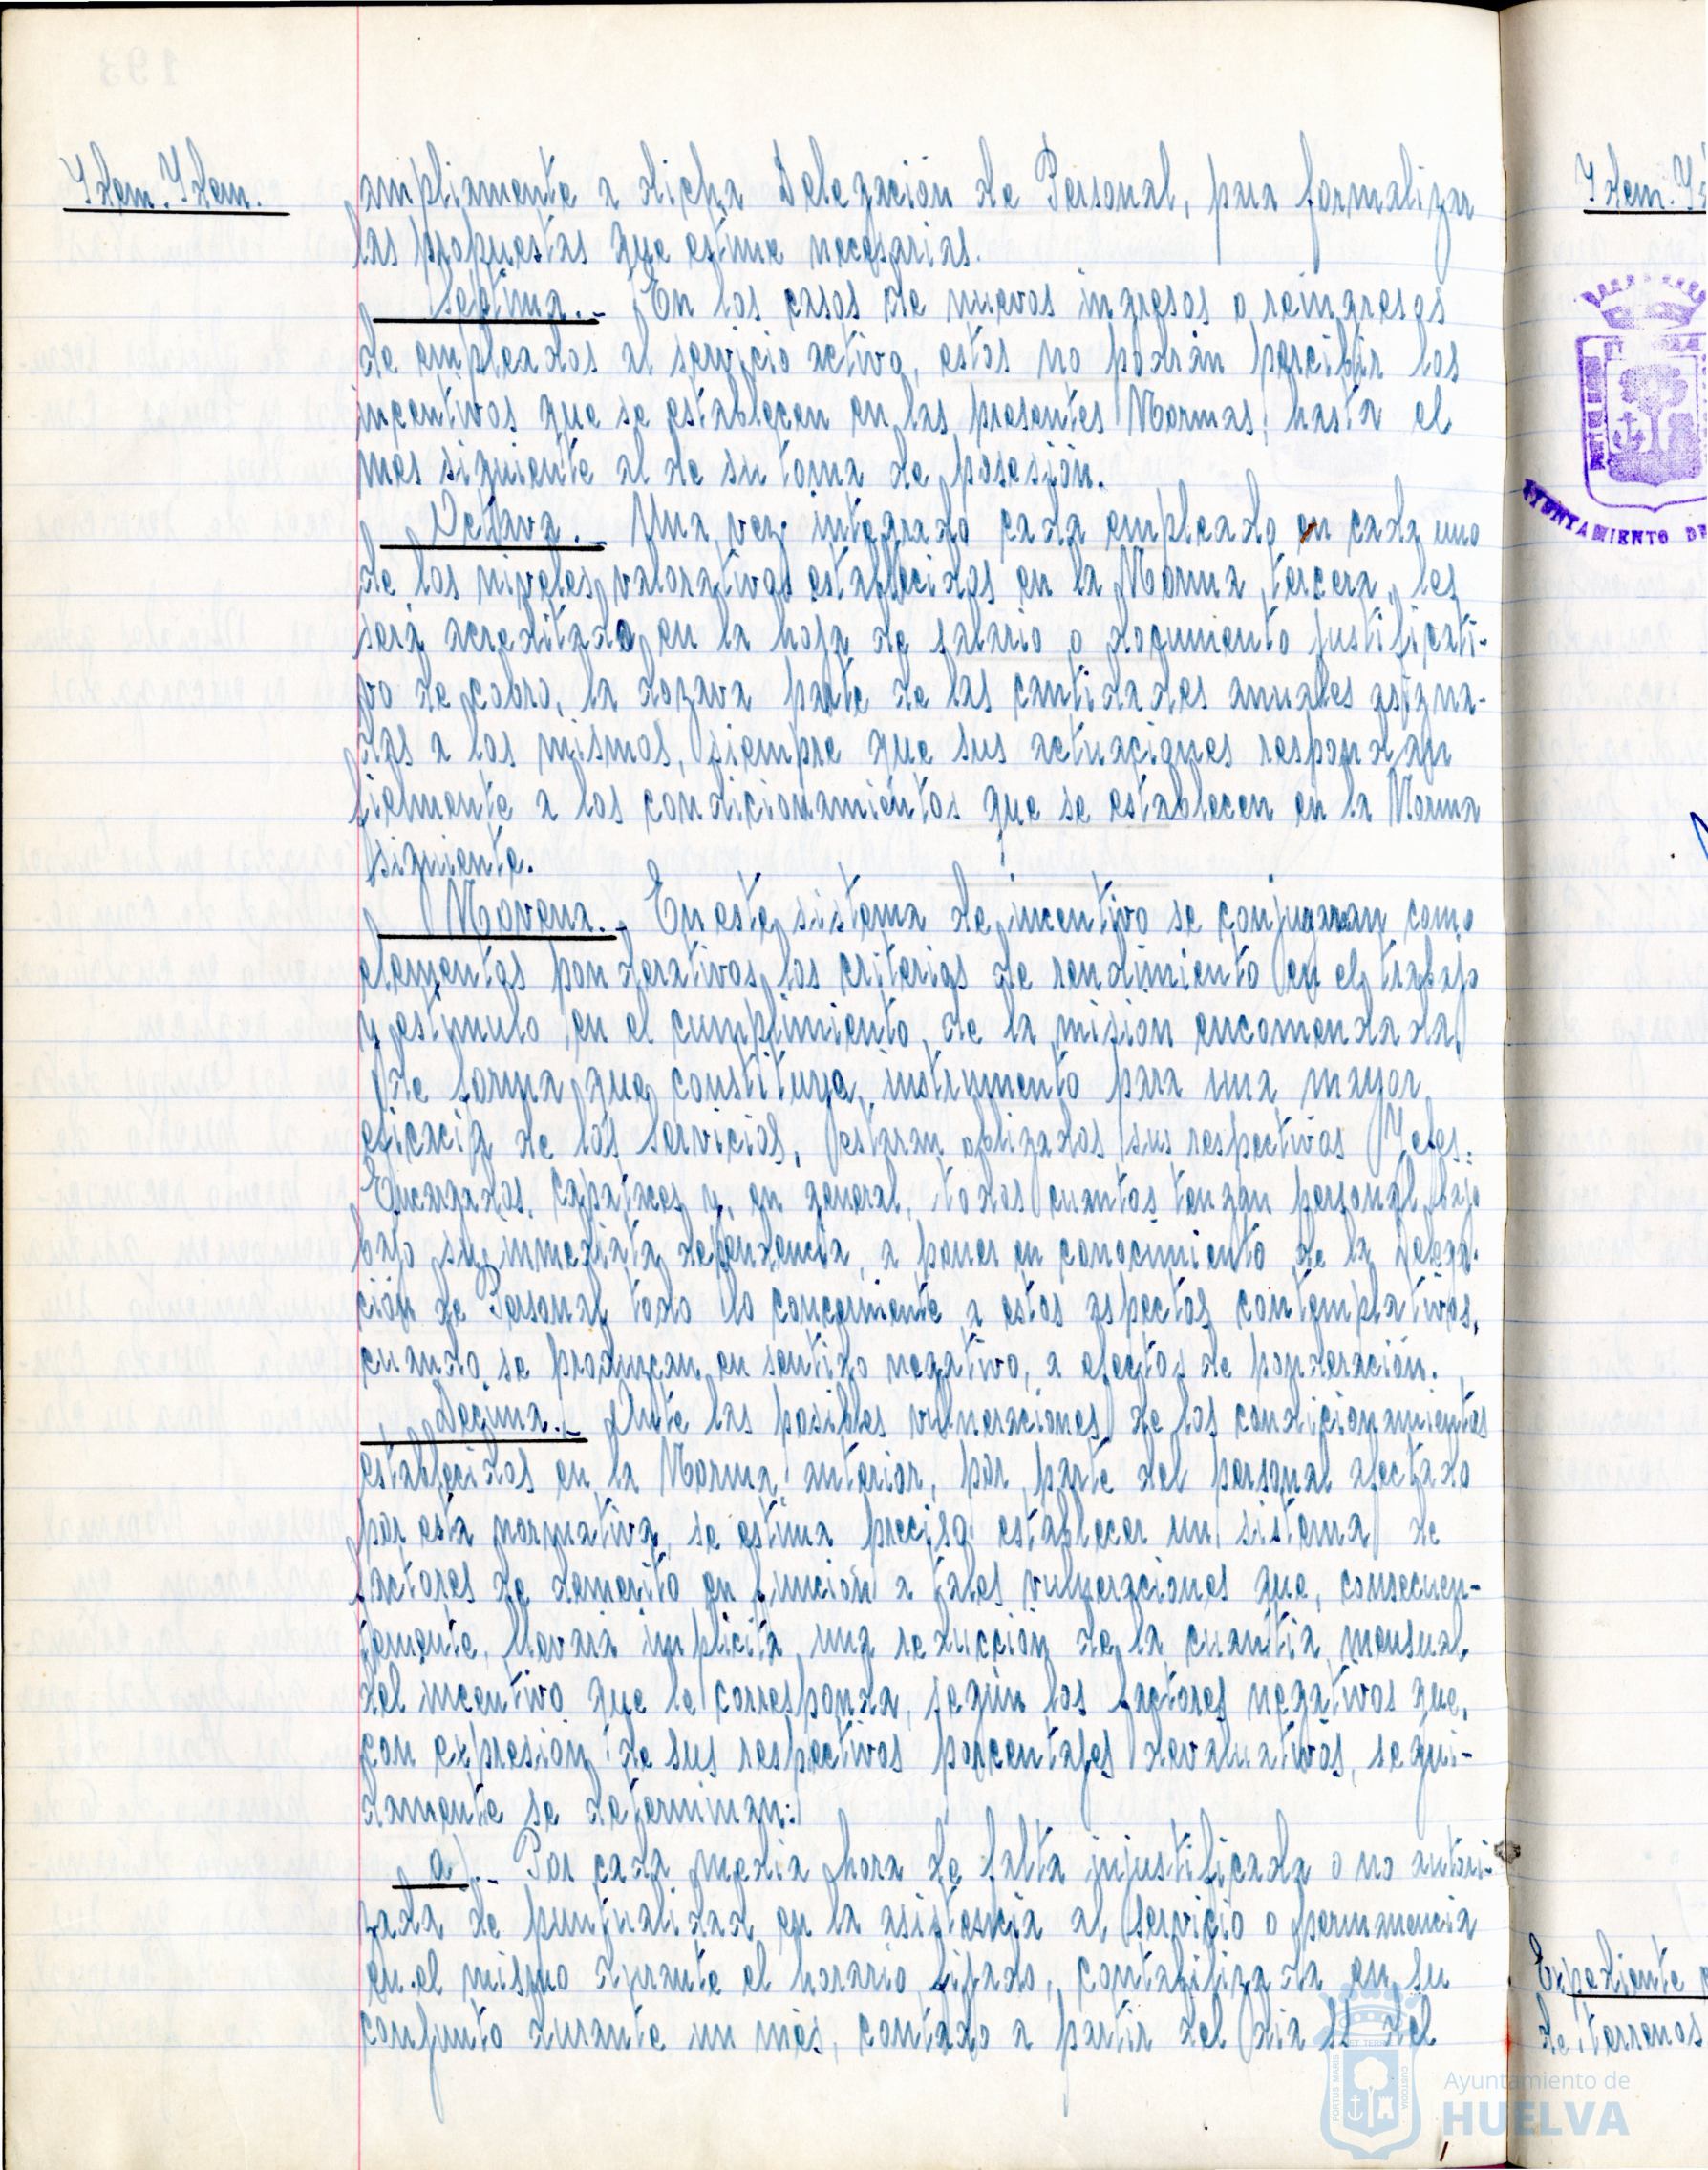 Idem. Idem.
ampliamente a dicha Delegación de Personal, para formalizar
las propuestas que estime necesarias.
Séptima.- En los casos de nuevos ingresos o reingresos
de empleados al servicio activo, estos no podrán percibir los
incentivos que se establecen en las presentes Normas, hasta el
mes siguiente al de su toma de posesión.
Octava.- Una vez integrado cada empleado en cada uno
de los niveles valorativos establecidos en la Norma tercera, les
será acreditado en la hoja de salario o documento justificati-
vo de cobro, la dozava parte de las cantidades anuales asigna-
das a los mismos, siempre que sus actuaciones respondan
fielmente a los condicionamientos que se establecen en la Norma
siguiente.
Novena.- En este sistema de incentivo se conjugaran como
elementos ponderativos los criterios de rendimiento en el trabajo
y estímulo en el cumplimiento de la misión encomendada
de forma que constituya instrumento para una mayor
eficacia de los servicios, estaran obligados sus respectivos Jefes,
Encargados, capataces y, en general, todos cuantos tengan personal bajo
bajo su inmediata dependencia, a poner en conocimiento de la Delega-
ción de Personal todo lo concerniente a estos aspectos contemplativos,
cuando se produzcan en sentido negativo, a efectos de ponderación.
Décima.- Ante las posibles vulneraciones de los condicionamientos
establecidos en la Norma anterior, por parte del personal afectado
por esta normativa, se estima preciso establecer un sistema de
factores de demerito en función a tales vulneraciones que, consecuen-
temente, llevará implicita una reducción de la cuantía mensual
del incentivo que le corresponda, según los factores negativos que,
con expresión de sus respectivos porcentajes devaluativos, segui-
damente se determinan:
a).- Por cada media hora de falta injustificada o no autori-
zada de puntualidad en la asistencia al servicio o permanencia
en el mismo durante el horario fijado, contabilizada en su
conjunto durante un mes, contado a partir del día 11 del
Idem. Id
AYUNTAMIENTO DE
Expediente
de terrenos
PORTUS MARIS
ET TERRAE
CUSTODIA
Ayuntamiento de
HUELVA